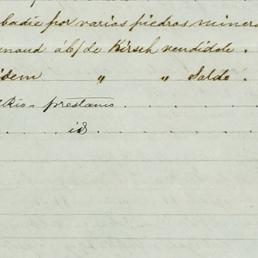 badie por varios piedras minera
enaud ab/ de Kirsch vendidole .
idem " " Saldo .
Rio = prestamo . . . . .
. . . . . id . . . . .